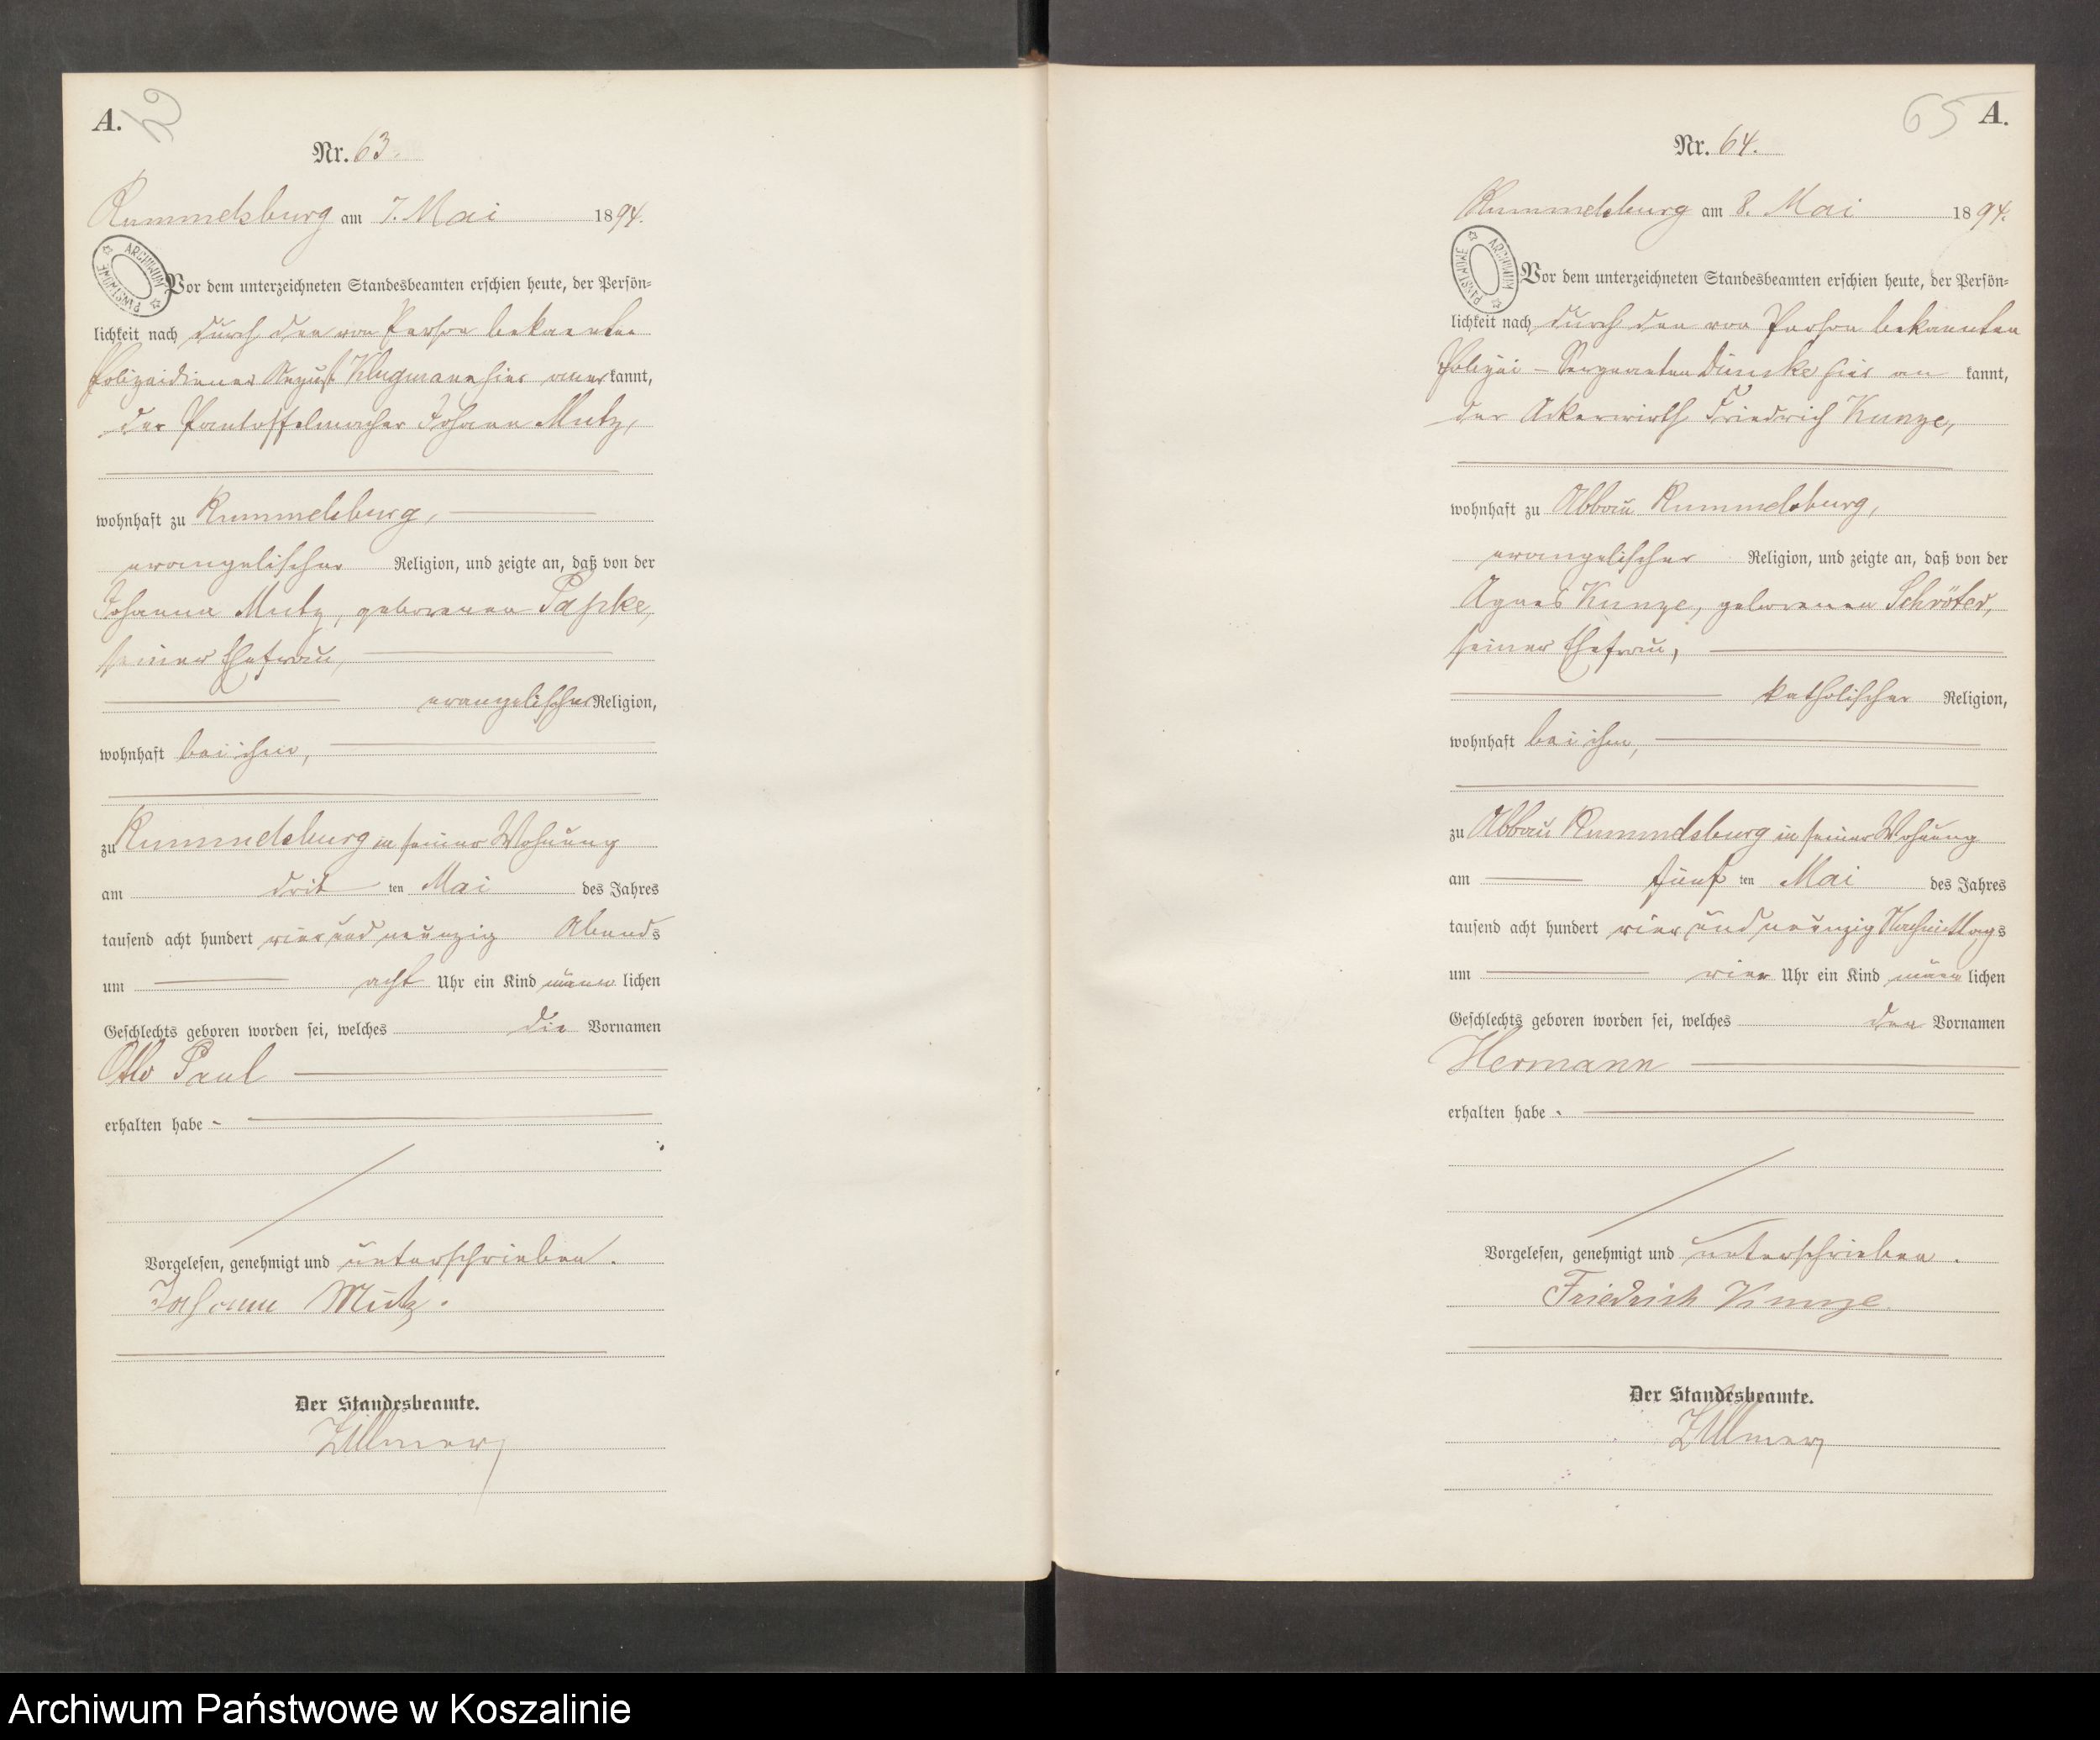 A.
Nr. 63.
Rummelsburg am 7. Mai 1894.
ARCHIWUM PAŃSTWOWE
Vor dem unterzeichneten Standesbeamten erschien heute, der Persön=
lichkeit nach durch den von Person bekannten
Polizeidiener August Klugmann hier anerkannt,
der Pantoffelmacher Johann Mutz,
wohnhaft zu Rummelsburg,
evangelischer Religion, und zeigte an, daß von der
Johanna Mutz, geborenen Papke,
seiner Ehefrau,
evangelischer Religion,
wohnhaft bei ihm,
zu Rummelsburg in seiner Wohnung
am dritten Mai des Jahres
tausend acht hundert vier und neunzig Abends
um acht Uhr ein Kind männlichen
Geschlechts geboren worden sei, welches die Vornamen
Otto Paul
erhalten habe.
Vorgelesen, genehmigt und unterschrieben.
Johann Mutz.
Der Standesbeamte.
Zillmer
65 A.
Nr. 64.
Rummelsburg am 8. Mai 1894.
ARCHIWUM PAŃSTWOWE
Vor dem unterzeichneten Standesbeamten erschien heute, der Persön=
lichkeit nach durch den von Person bekannten
Polizei-Sergeanten hier an kannt,
der Ackerwirth Friedrich Kunze,
wohnhaft zu Abbau Rummelsburg,
evangelischer Religion, und zeigte an, daß von der
Agnes Kunze, geborenen Schröter,
seiner Ehefrau,
katholischer Religion,
wohnhaft bei ihm,
zu Abbau Rummelsburg in seiner Wohnung
am fünften Mai des Jahres
tausend acht hundert vier und neunzig Nachmittags
um vier Uhr ein Kind männlichen
Geschlechts geboren worden sei, welches den Vornamen
Hermann
erhalten habe.
Vorgelesen, genehmigt und unterschrieben.
Friedrich Kunze.
Der Standesbeamte.
Zillmer
Archiwum Państwowe w Koszalinie